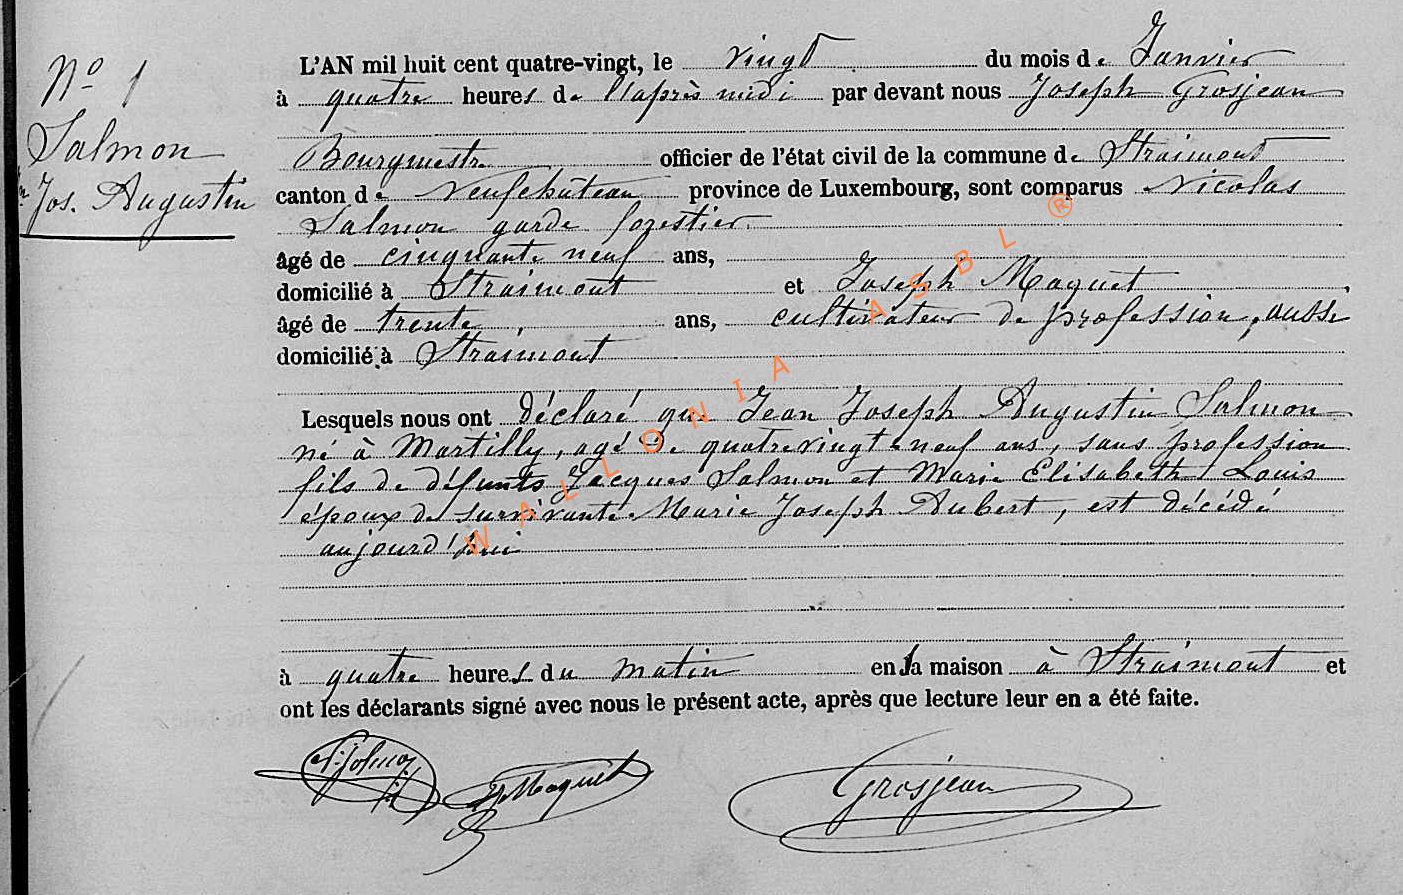 N° 1
Salmon
Jn Jos. Augustin
L'AN mil huit cent quatre-vingt, le vingt du mois de Janvier
à quatre heures de l'après midi par devant nous Joseph Grosjean
Bourgmestre officier de l'état civil de la commune de Straimont
canton de Neufchâteau province de Luxembourg, sont comparus Nicolas
Salmon garde forestier
âgé de cinquante neuf ans,
domicilié à Straimont et Joseph Maquet
âgé de trente, ans, cultivateur de profession, aussi
domicilié à Straimont
Lesquels nous ont déclaré que Jean Joseph Augustin Salmon
né à Martilly, agé de quatrevingt neuf ans, sans profession
fils de défunts Jacques Salmon et Marie Elisabeth Louis
époux de survivante Marie Joseph Aubert, est décédé
aujourd'hui
à quatre heures du matin en la maison à Straimont et
ont les déclarants signé avec nous le présent acte, après que lecture leur en a été faite.
N. Salmon J Maquet Grosjean
WALLONIA ASBL ®